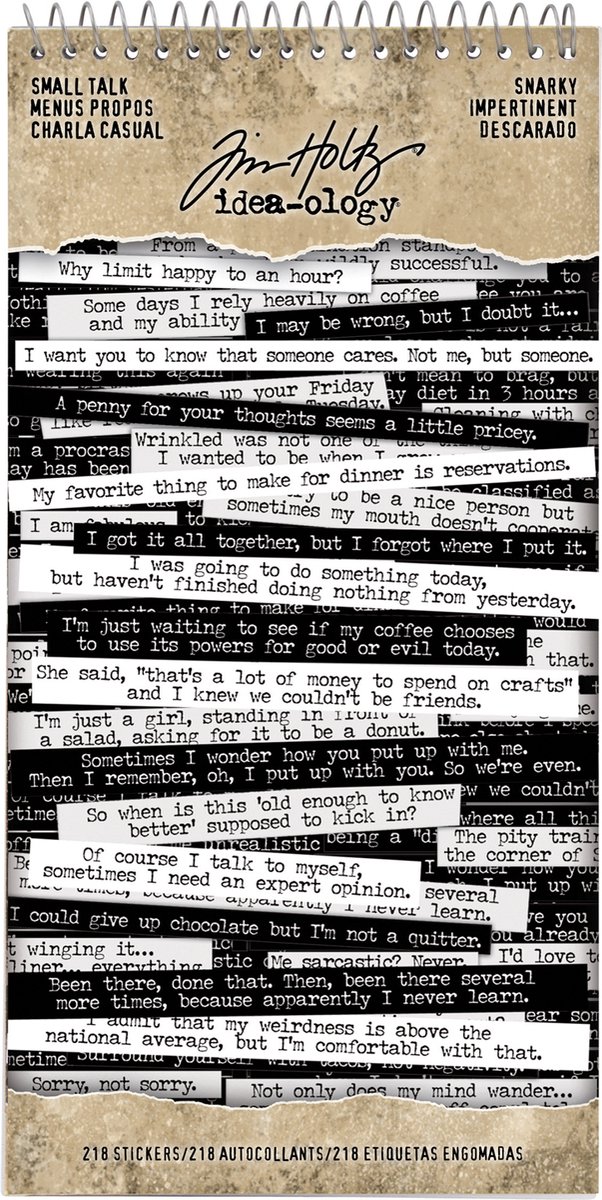 SMALL TALK
MENUS PROPOS
CHARLA CASUAL
SNARKY
IMPERTINENT
DESCARADO
Tim Holtz
idea-ology
Why limit happy to an hour?
wildly successful.
Some days I rely heavily on coffee
and my ability
I may be wrong, but I doubt it...
I want you to know that someone cares. Not me, but someone.
wearing this again
mean to brag, but
up your Friday
diet in 3 hours
Tuesday.
A penny for your thoughts seems a little pricey.
Wrinkled was not one of the
I wanted to be when I
My favorite thing to make for dinner is reservations.
to be a nice person but
sometimes my mouth doesn't
I am fabulous
I got it all together, but I forgot where I put it.
I was going to do something today,
but haven't finished doing nothing from yesterday.
would
I'm just waiting to see if my coffee chooses
to use its powers for good or evil today.
that.
She said, "that's a lot of money to spend on crafts"
and I knew we couldn't be friends.
I'm just a girl, standing in front of
a salad, asking for it to be a donut.
Sometimes I wonder how you put up with me.
Then I remember, oh, I put up with you. So we're even.
So when is this 'old enough to know
better' supposed to kick in?
where all
unrealistic
being a
The pity
the corner of
Of course I talk to myself,
sometimes I need an expert opinion.
several
more times, because apparently I never learn.
I could give up chocolate but I'm not a quitter.
already
winging it...
everything
Me sarcastic? Never.
I'd love
Been there, done that. Then, been there several
more times, because apparently I never learn.
I admit that my weirdness is above the
national average, but I'm comfortable with that.
Sorry, not sorry.
Not only does my mind wander...
218 STICKERS/218 AUTOCOLLANTS/218 ETIQUETAS ENGOMADAS